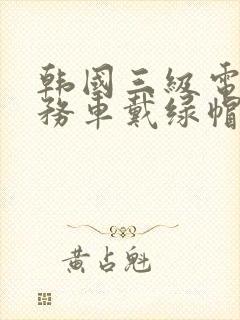 韩国三级电
务车戴绿帽
黄占魁